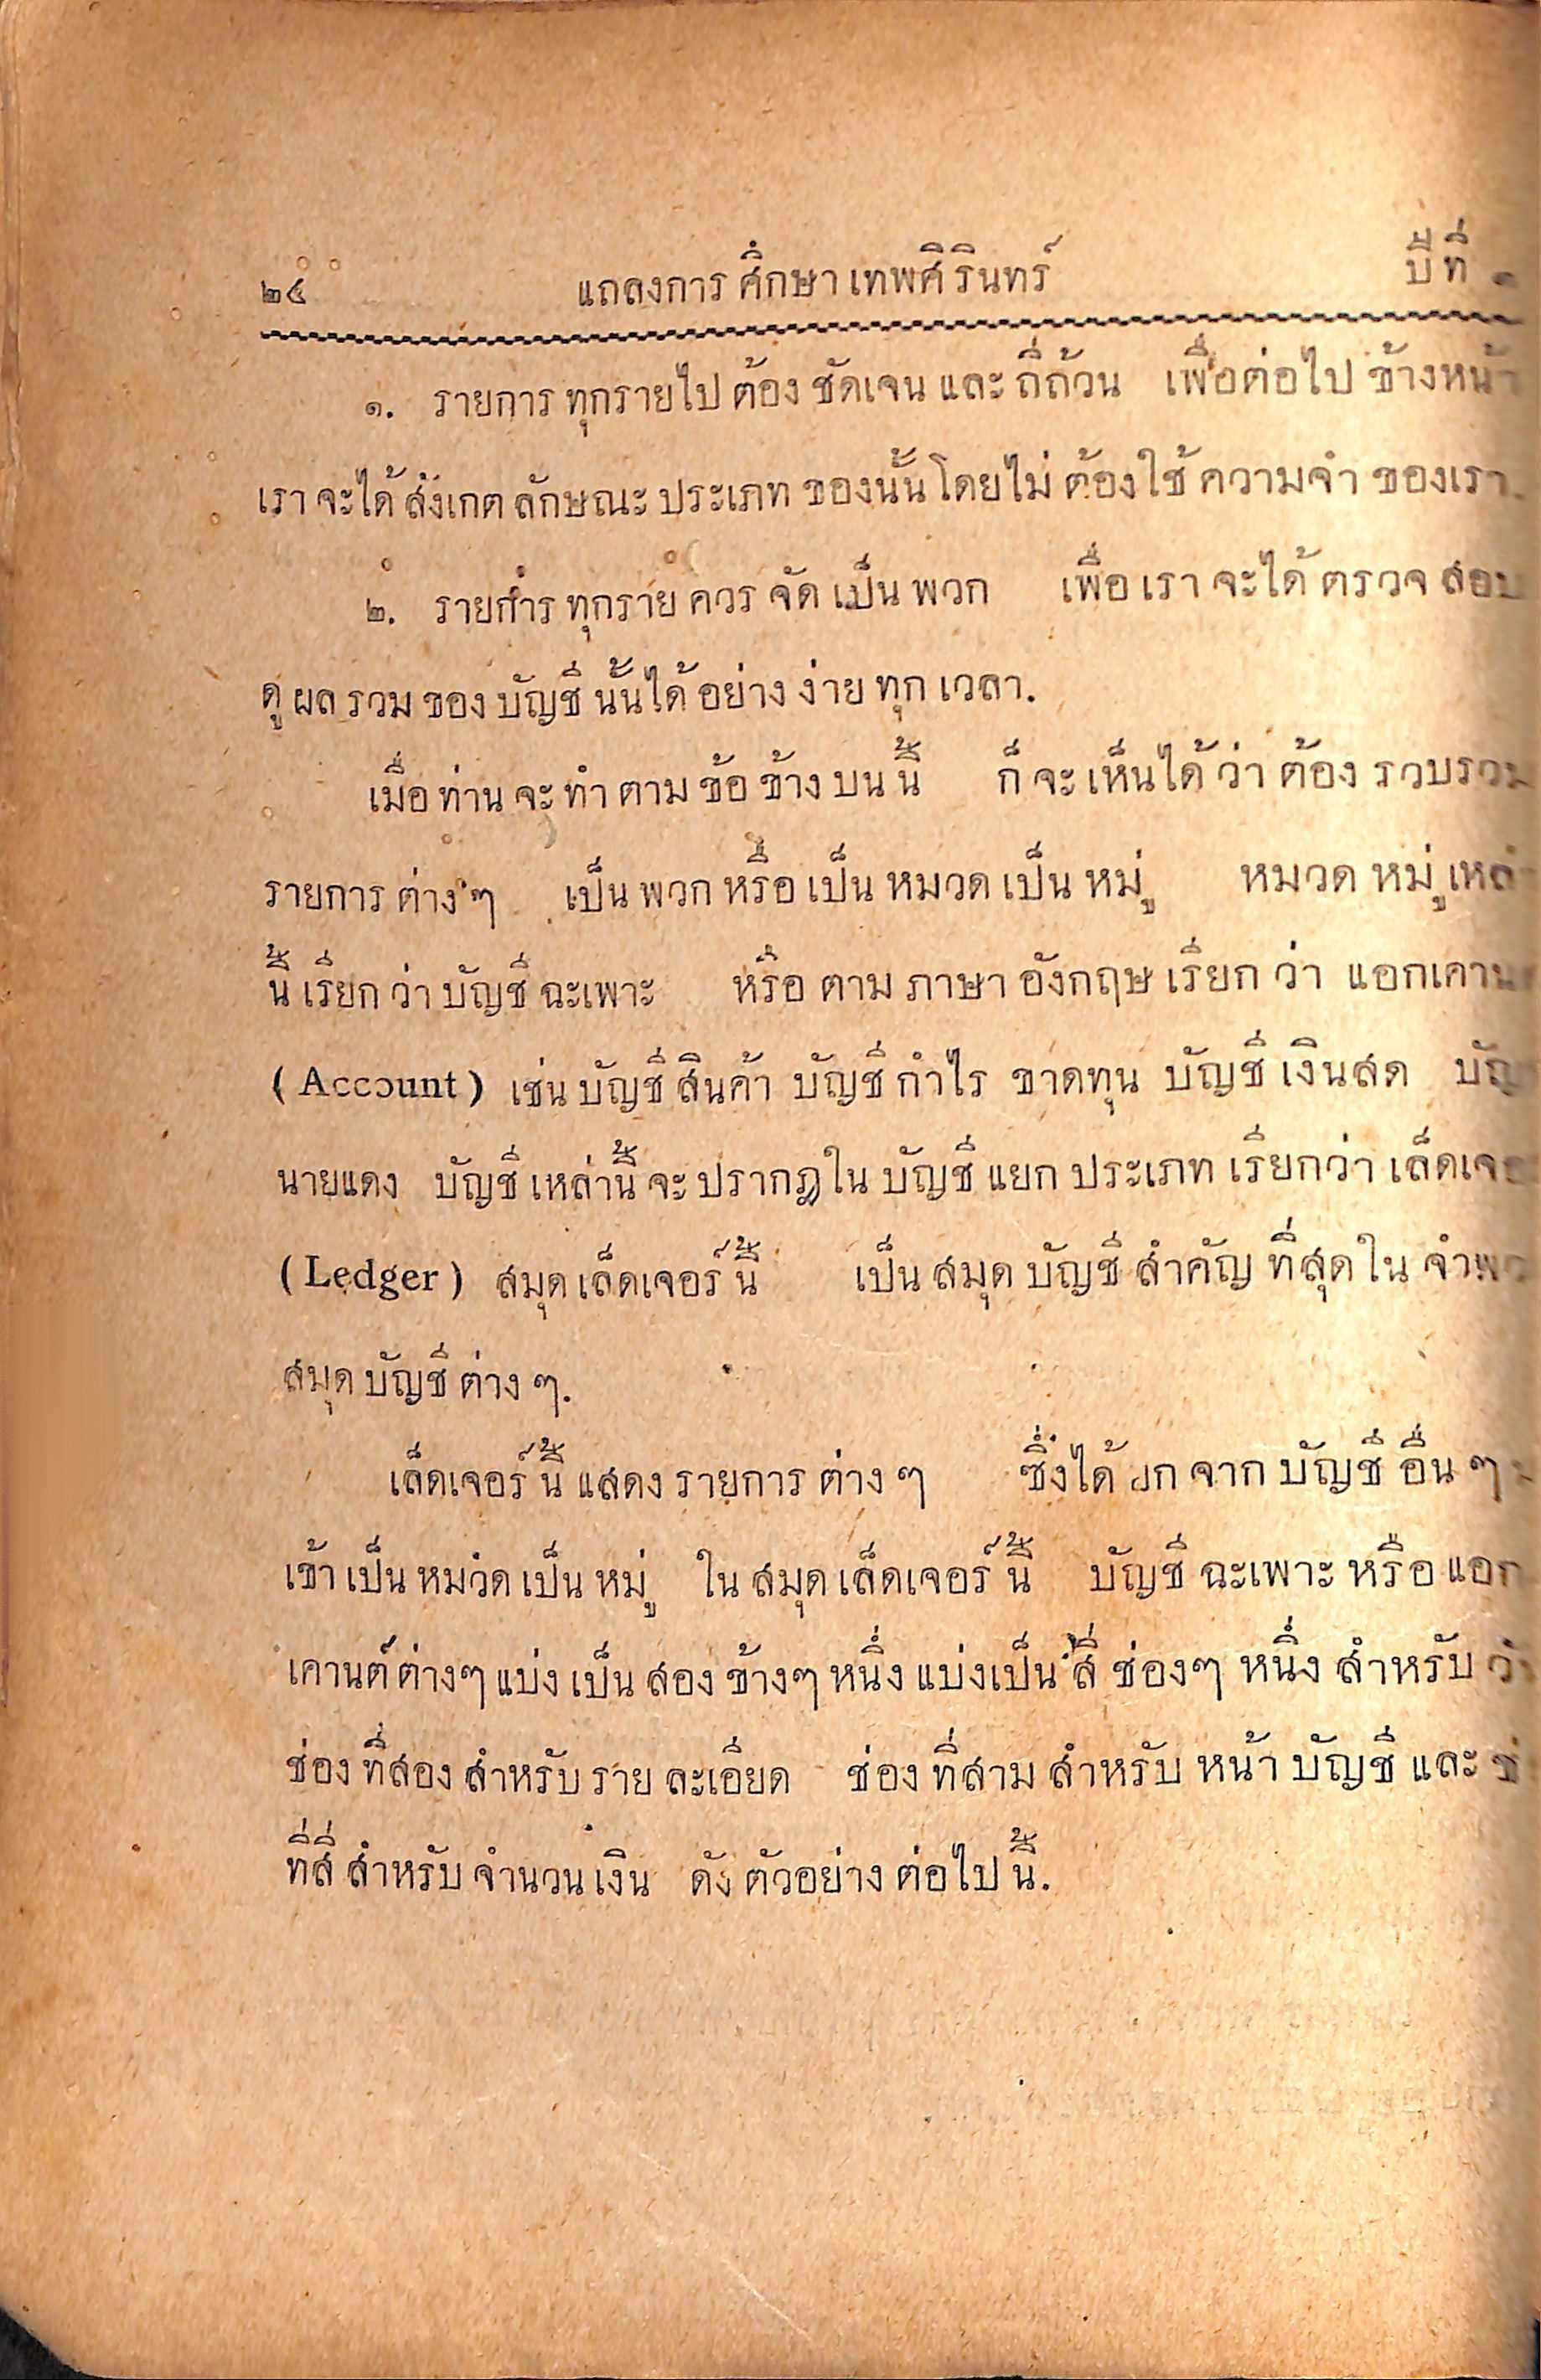 ๒๔ แถลงการ ศึกษา เทพศิรินทร์ ปีที่ ๑
๑. รายการ ทุกรายไป ต้อง ชัดเจน และ ถี่ถ้วน เพื่อต่อไป ข้างหน้า
เรา จะได้ สังเกต ลักษณะ ประเภท ของนั้น โดยไม่ ต้องใช้ ความจำ ของเรา.
๒. รายการ ทุกราย ควร จัด เป็น พวก เพื่อ เรา จะได้ ตรวจ สอบ
ดู ผล รวม ของ บัญชี นั้นได้ อย่าง ง่าย ทุก เวลา.
เมื่อ ท่าน จะ ทำ ตาม ข้อ ข้าง บน นี้ ก็ จะ เห็นได้ ว่า ต้อง รวบรวม
รายการ ต่าง ๆ เป็น พวก หรือ เป็น หมวด เป็น หมู่ หมวด หมู่ เหล่า
นี้ เรียก ว่า บัญชี ฉะเพาะ หรือ ตาม ภาษา อังกฤษ เรียก ว่า แอกเคาน
(Account) เช่น บัญชี สินค้า บัญชี กำไร ขาดทุน บัญชี เงินสด บัญ
นายแดง บัญชี เหล่านี้ จะ ปรากฏ ใน บัญชี แยก ประเภท เรียกว่า เล็ดเจอ
(Ledger) สมุด เล็ดเจอร์ นี้ เป็น สมุด บัญชี สำคัญ ที่สุด ใน จำพวก
สมุด บัญชี ต่าง ๆ.
เล็ดเจอร์ นี้ แสดง รายการ ต่าง ๆ ซึ่งได้ ยก จาก บัญชี อื่น ๆ
เข้า เป็น หมวด เป็น หมู่ ใน สมุด เล็ดเจอร์ นี้ บัญชี ฉะเพาะ หรือ แอก
เคานต์ ต่างๆ แบ่ง เป็น สอง ข้างๆ หนึ่ง แบ่งเป็น สี่ ช่องๆ หนึ่ง สำหรับ วัน
ช่อง ที่สอง สำหรับ ราย ละเอียด ช่อง ที่สาม สำหรับ หน้า บัญชี และ
ที่สี่ สำหรับ จำนวน เงิน ดัง ตัวอย่าง ต่อไป นี้.